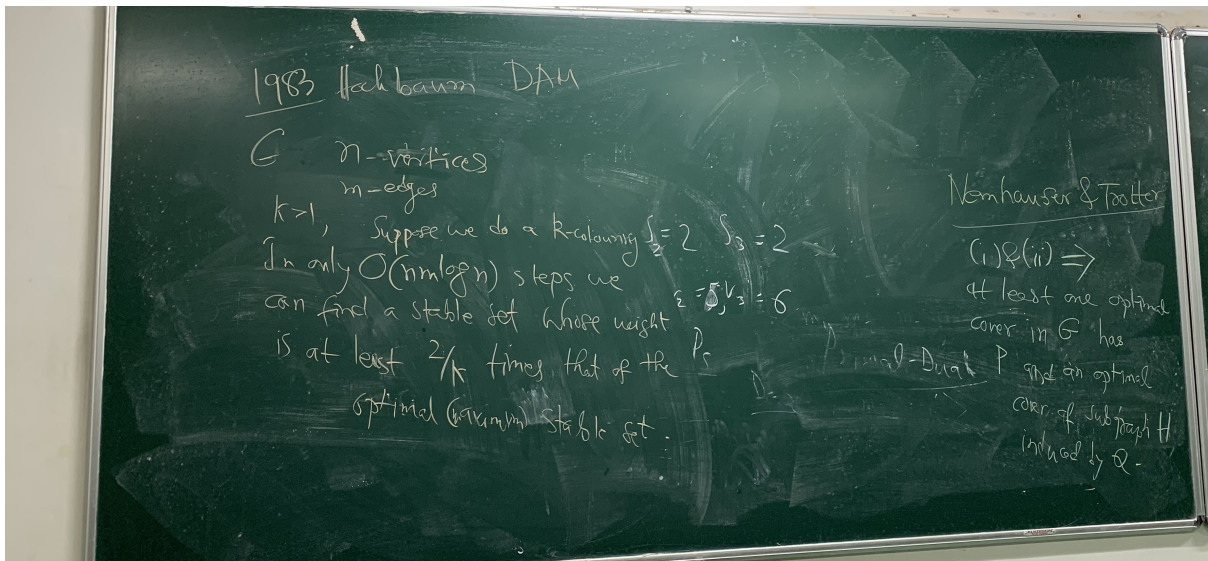 1983 Hochbaum DAM
G n-vertices
m-edges
k>1, Suppose we do a k-colouring
In only O(nmlogn) steps we
can find a stable set whose weight
is at least 2/k times that of the
optimal (maximum) stable set.
= 2 S3 = 2
V3 = 6
Ps
D
Primal-Dual
Nemhauser & Trotter
(i)&(ii) ⇒
at least one optimal
cover in G has
P and an optimal
cover of subgraph H
induced by Q.